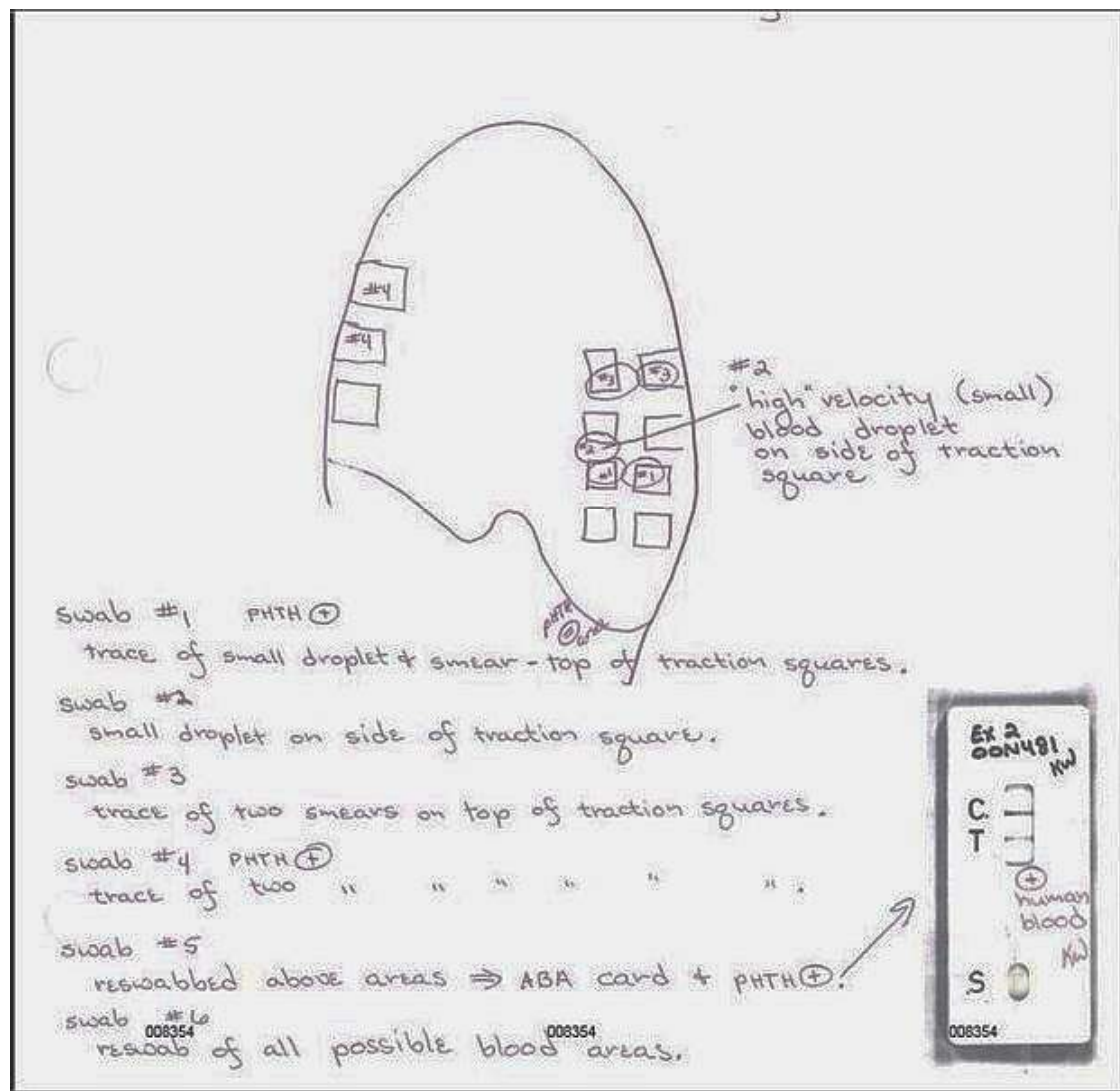 #4
#4
#3
#3
#2
#1
#1
#2
"high" velocity (small)
blood droplet
on side of traction
square
PHTH
⊖ area
swab #1 PHTH ⊕
trace of small droplet & smear - top of traction squares.
swab #2
small droplet on side of traction square.
swab #3
trace of two smears on top of traction squares.
swab #4 PHTH ⊕
trace of two " " " " " ".
swab #5
reswabbed above areas ⇒ ABA card & PHTH ⊕.
swab #6
reswab of all possible blood areas.
Ex 2
00N481
KW
C.
T
⊕
human
blood
KW
S
008354
008354
008354